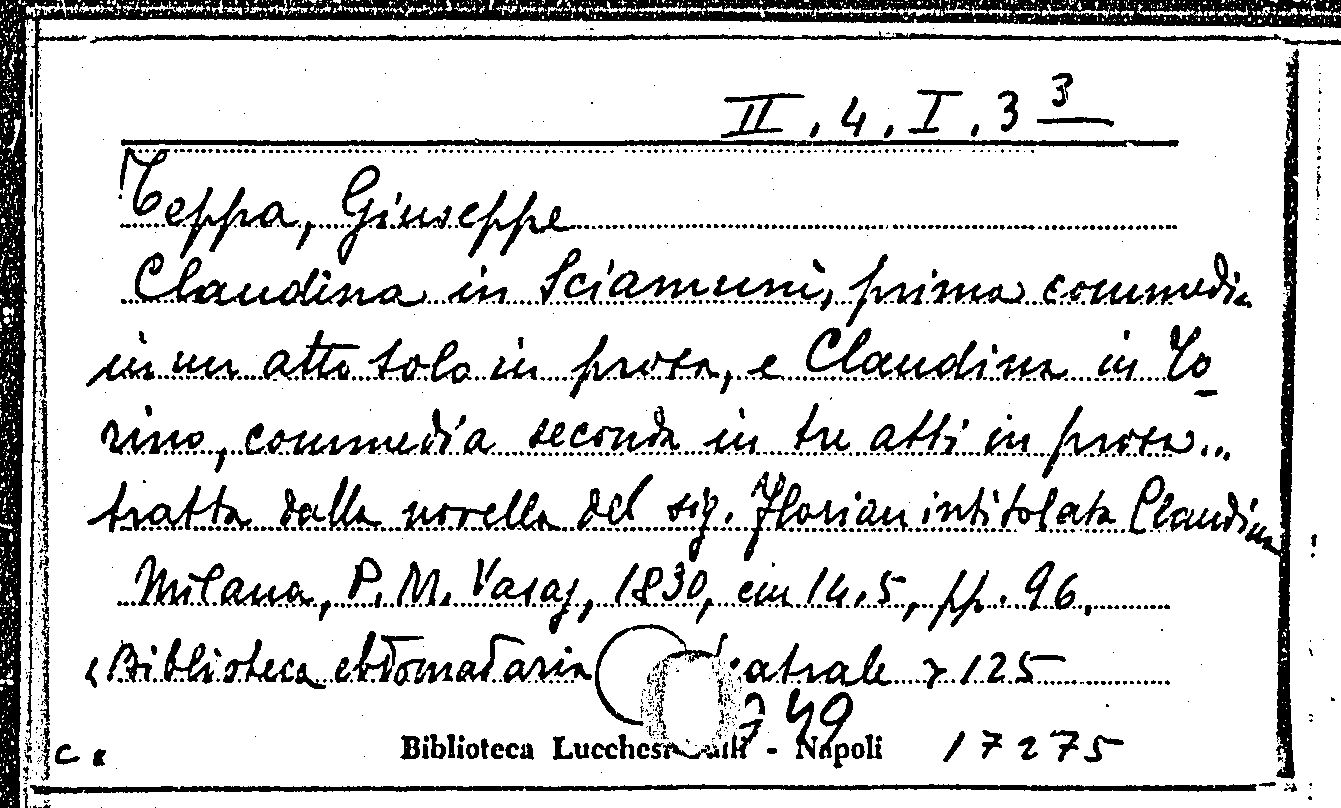 II.4.I.3 3
Teppa, Giuseppe
Claudina in Sciamunì, prima commedia
in un atto solo in prosa, e Claudina in To
rino, commedia seconda in tre atti in prosa...
tratta dalla novella del sig. Florian intitolata Claudina
Milano, P. M. Visaj, 1830, cm 14.5, pp. 96.
«Biblioteca ebdomadaria teatrale» 125
749
Biblioteca Lucchesi - Napoli 17275
c.